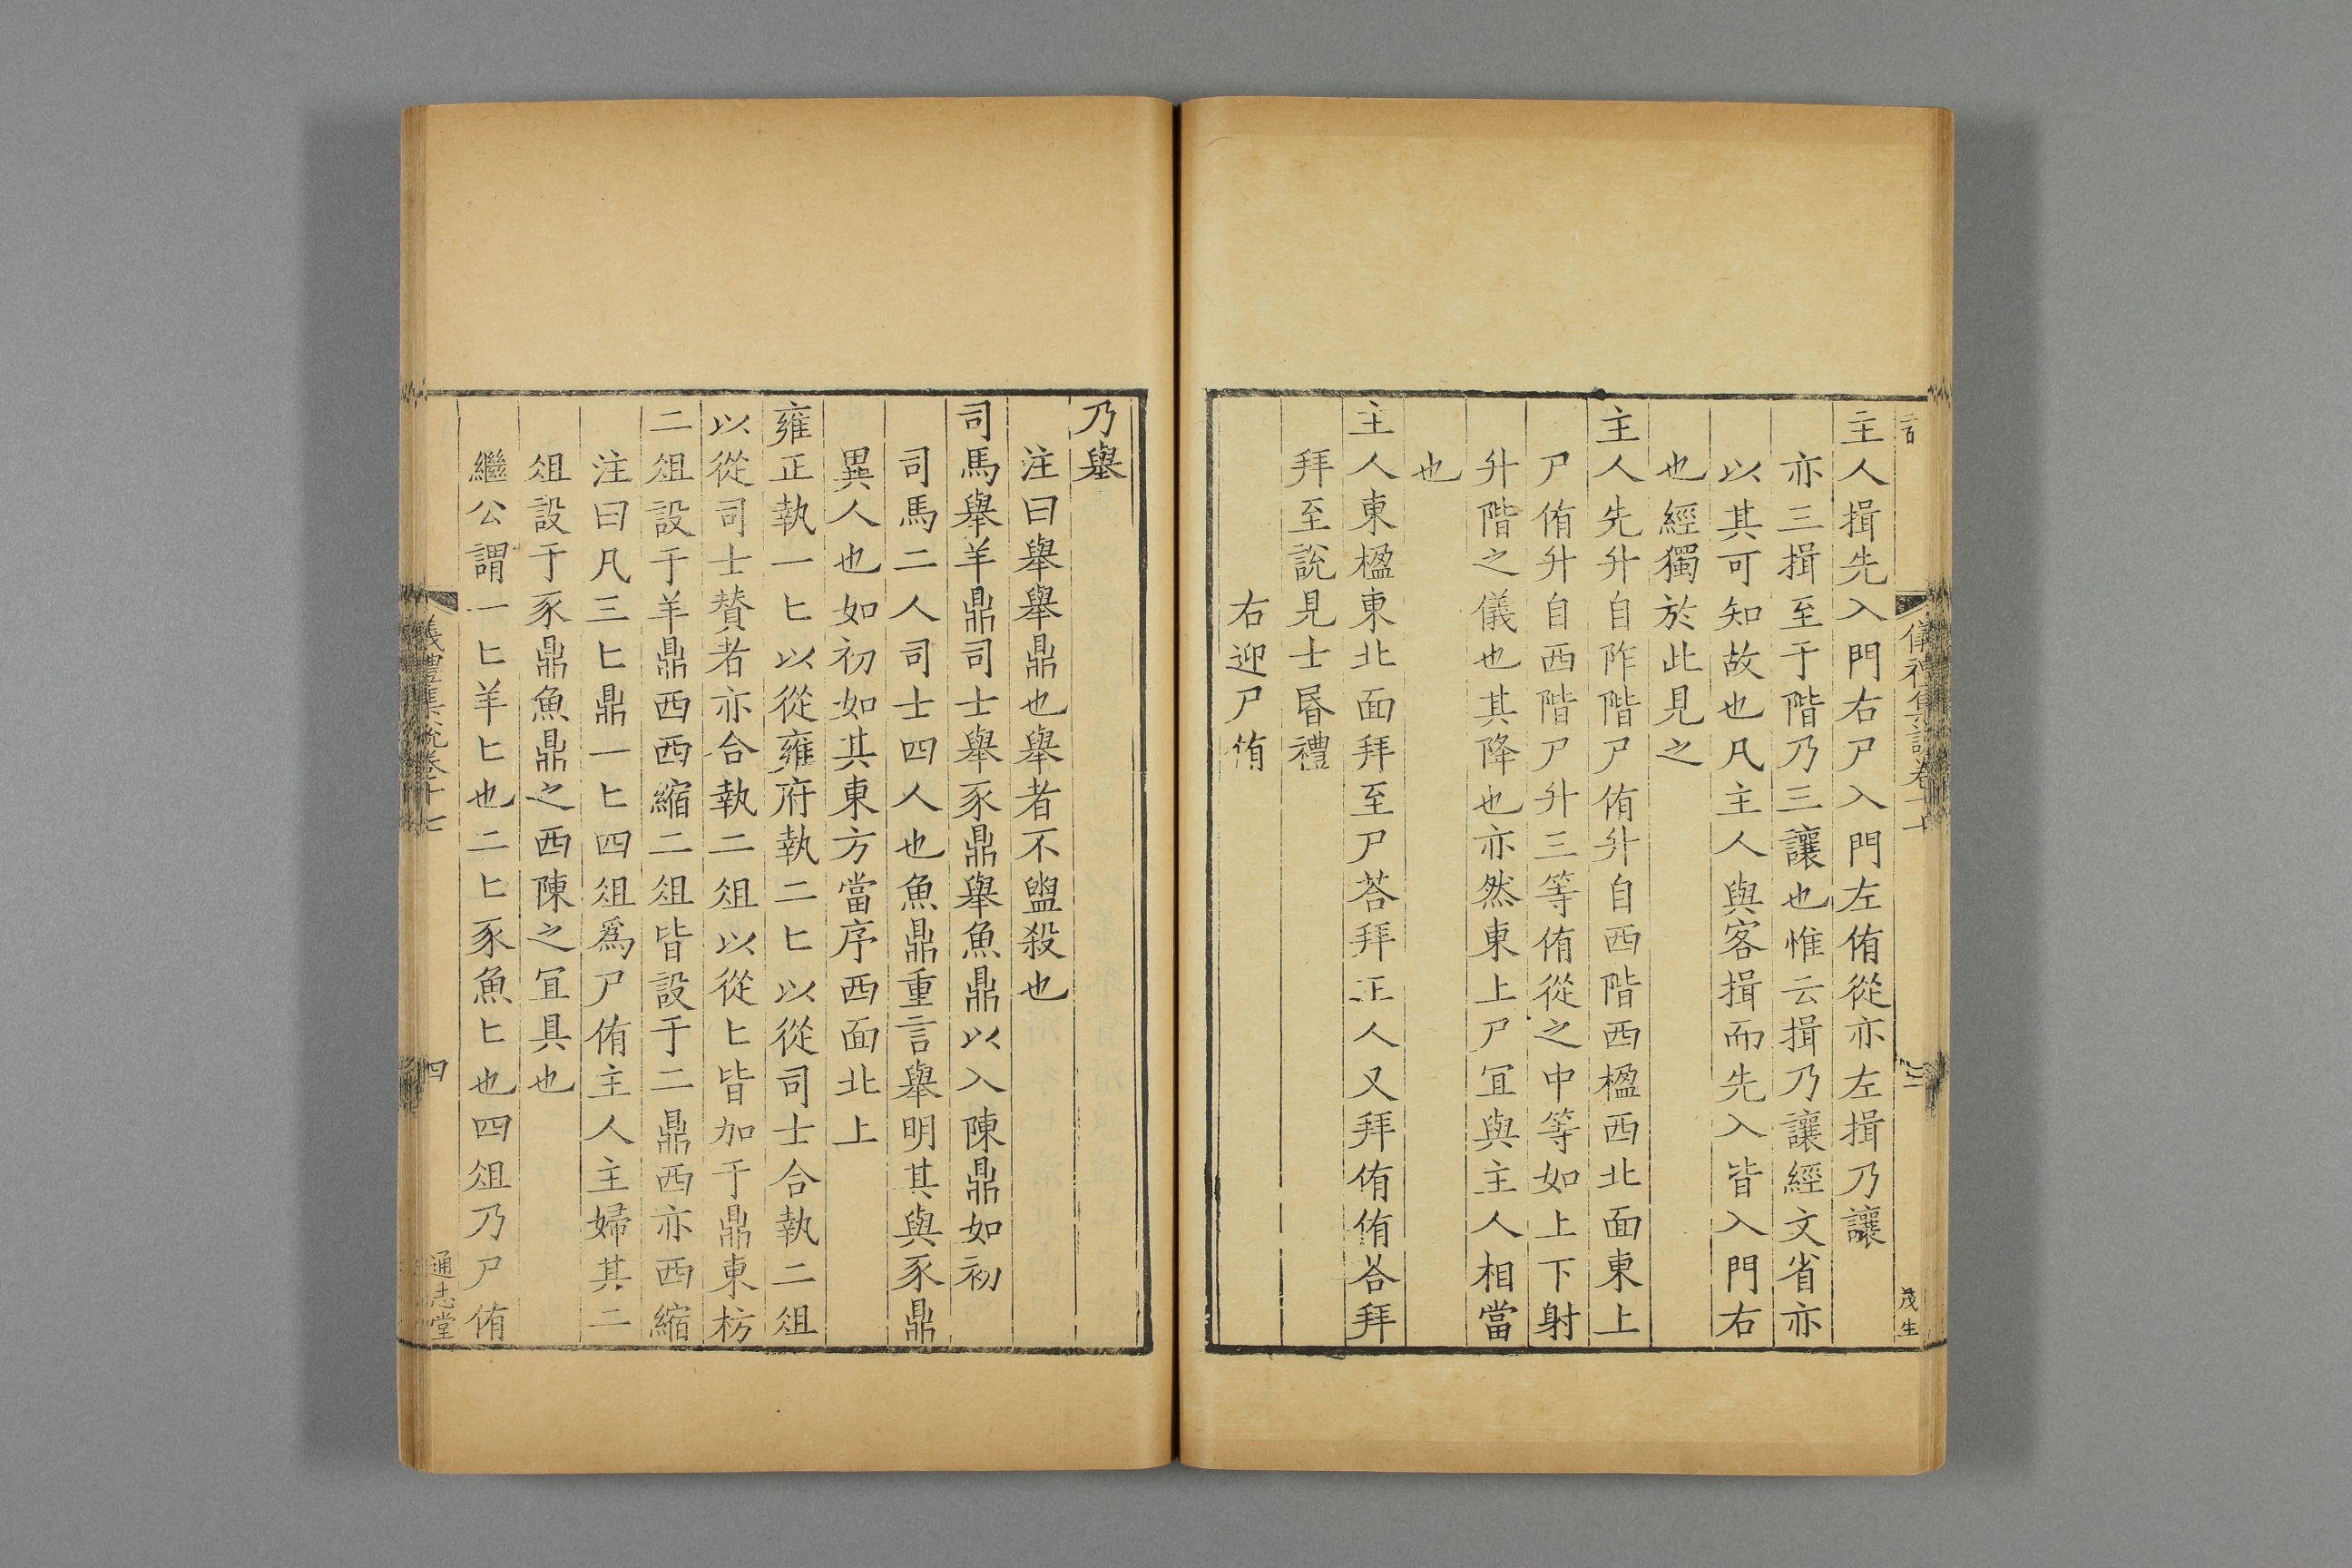 主人揖先入門右尸入門左侑從亦左揖乃讓
亦三揖至于階乃三讓也惟云揖乃讓經文省亦
以其可知故也凡主人與客揖而先入皆入門右
也經獨於此見之
主人先升自阼階尸侑升自西階西楹西北面東上
尸侑升自西階尸升三等侑從之中等如上下射
升階之儀也其降也亦然東上尸冝與主人相當
也
主人東楹東北面拜至尸荅拜主人又拜侑侑荅拜
拜至說見士昬禮
右迎尸侑
茂生
乃舉
注曰舉舉鼎也舉者不盥殺也
司馬舉羊鼎司士舉豕鼎舉魚鼎以入陳鼎如初
司馬二人司士四人也魚鼎重言舉明其與豕鼎
異人也如初如其東方當序西面北上
雍正執一匕以從雍府執二匕以從司士合執二俎
以從司士賛者亦合執二俎以從匕皆加于鼎東枋
二俎設于羊鼎西西縮二俎皆設于二鼎西亦西縮
注曰凡三匕鼎一匕四俎爲尸侑主人主婦其二
俎設于豕鼎魚鼎之西陳之冝具也
繼公謂一匕羊匕也二匕豕魚匕也四俎乃尸侑
儀禮集說卷十七
四
通志堂